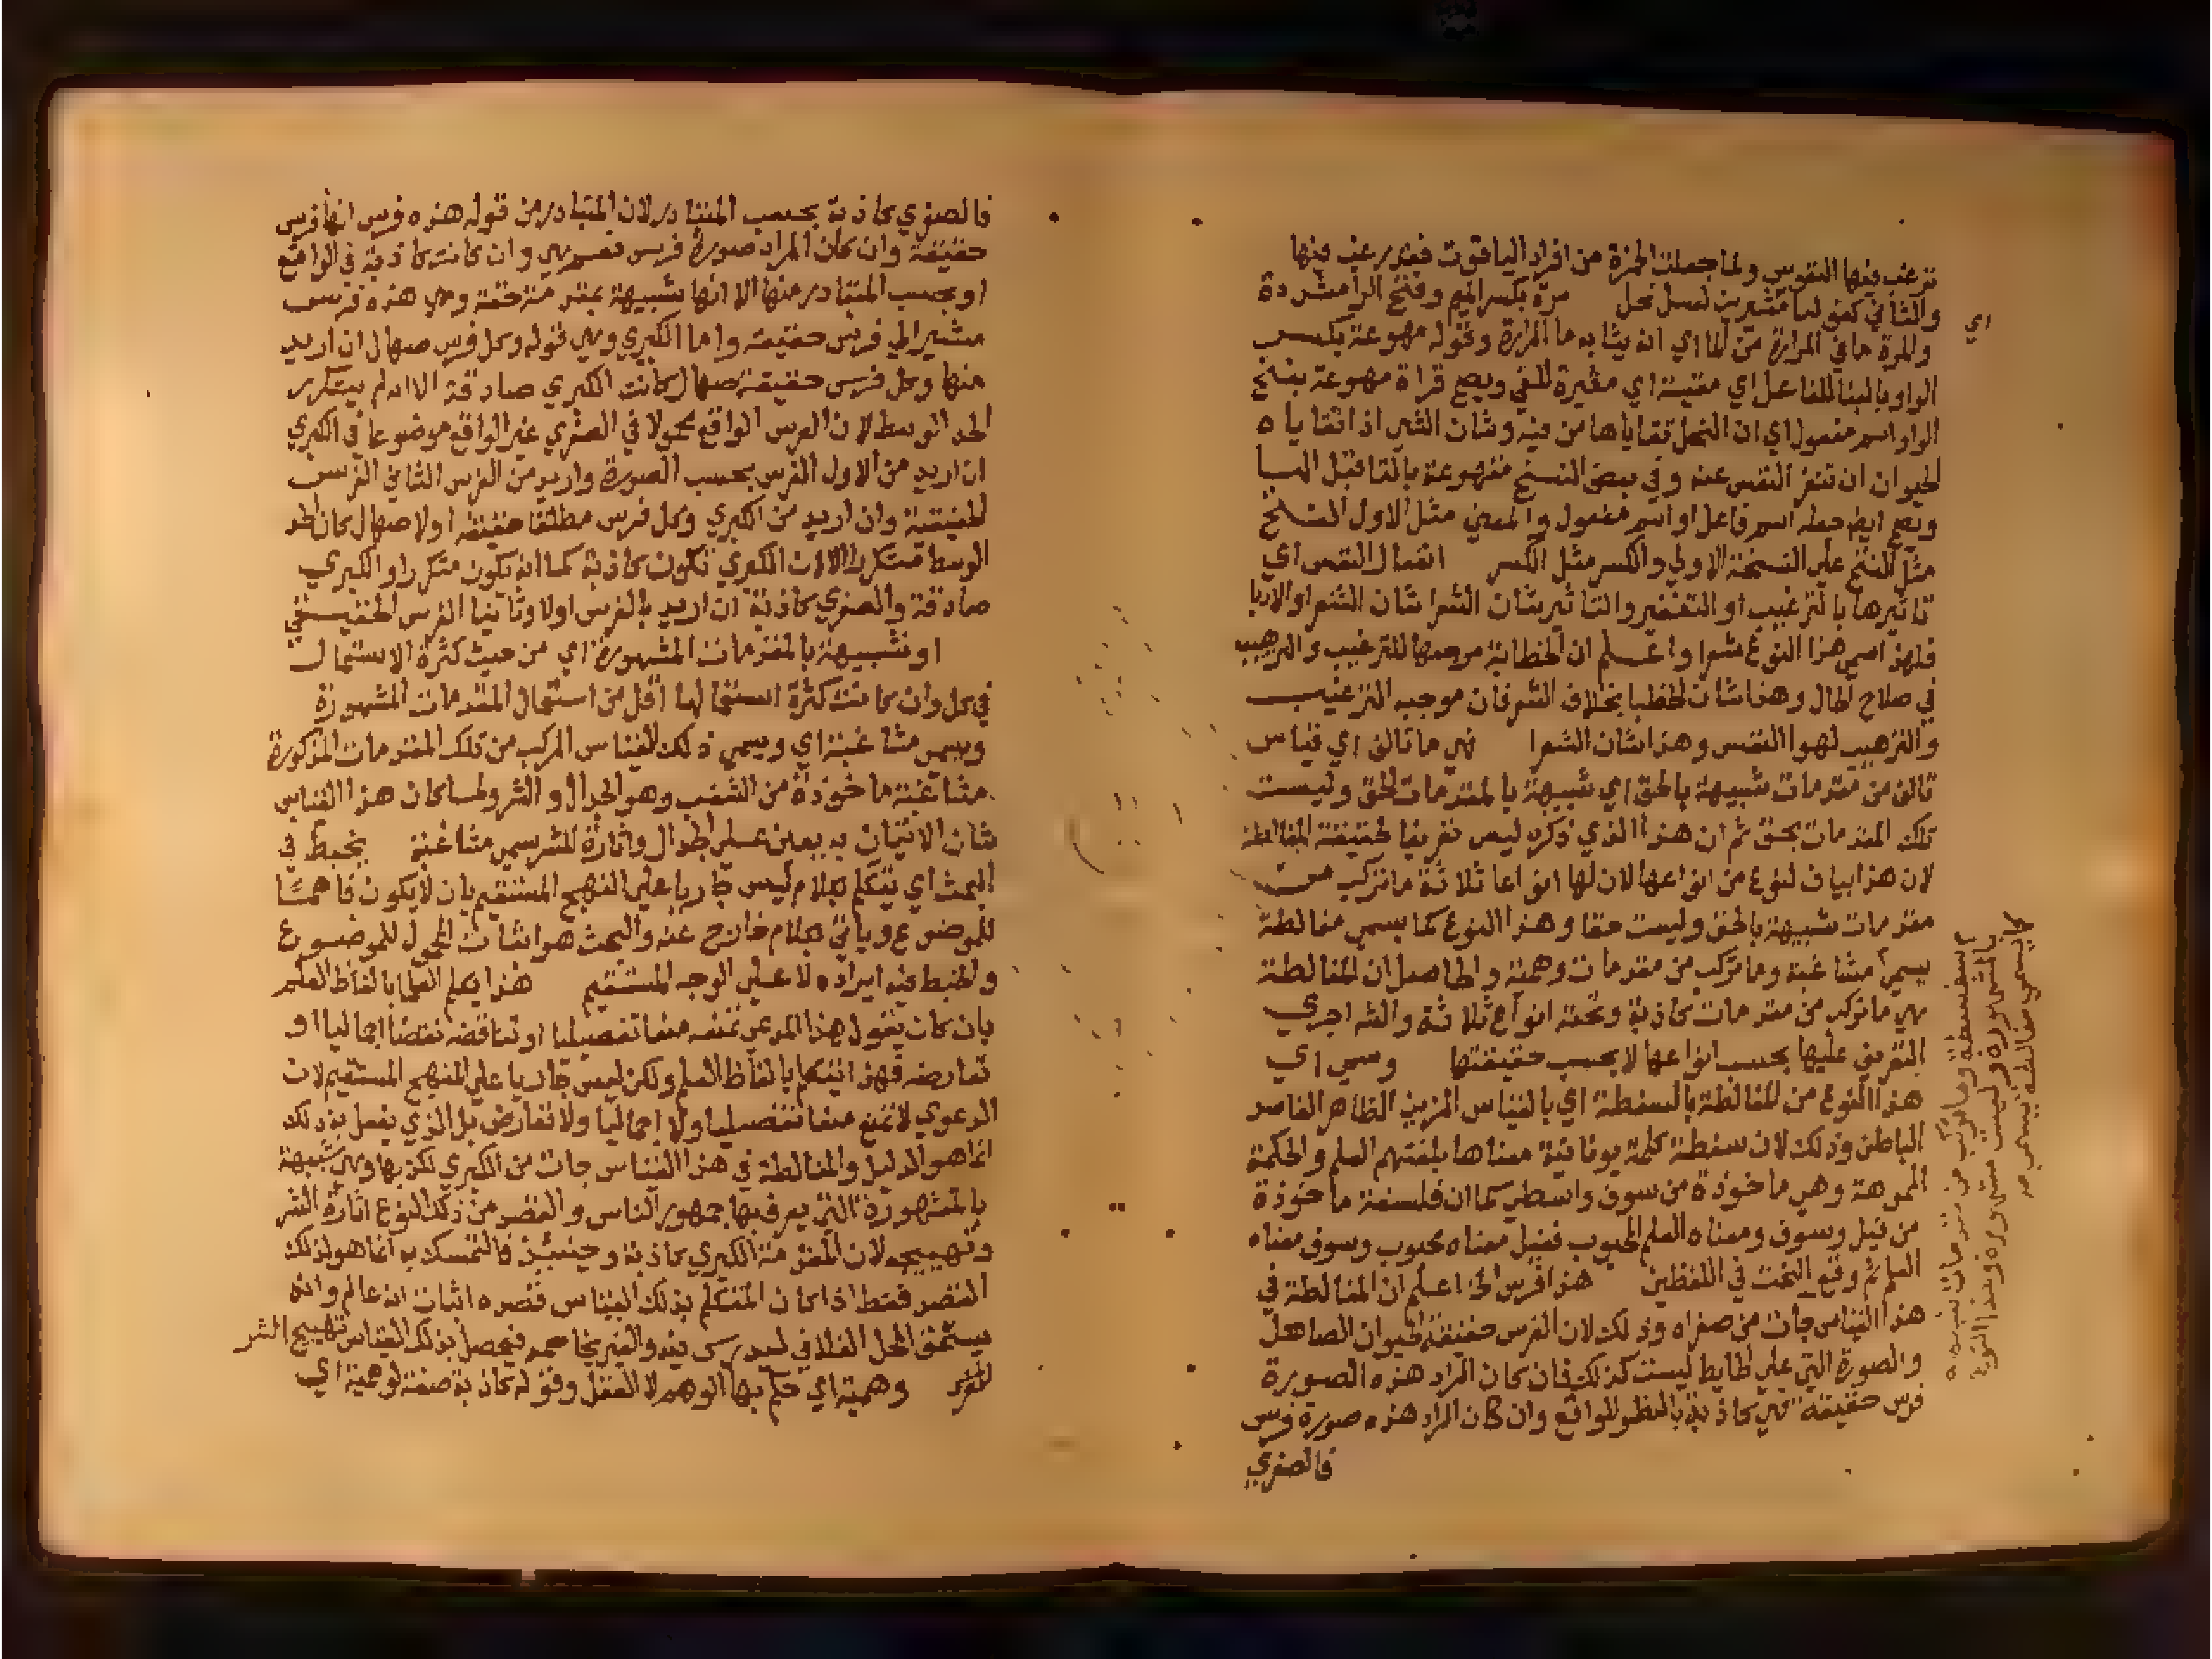 ترغب فيها النفوس ولما جعلت الخمرة من افراد الياقوت فقد رغب فيها
والثاني كقولنا مشيرين لعسل نحل مرة بكسر الميم وفتح الرا مشددة
والمرة ما في المرارة من الما اي انه يشابه ما المرارة وقوله مهوعة بكسر
الواو بالبنا للفاعل اي مقيئة اي مثيرة للقي ويصح قراة مهوعة بفتح
الواو اسم مفعول اي ان النحل تقاياها من فيه وشان الشي اذا تقاياه
الحيوان ان تنفر النفس عنه وفي بعض النسخ متهوعة بالتا قبل الها
ويصح ايضا جعله اسم فاعل او اسم مفعول والمعني مثل الاول الفتح
مثل الفتح علي النسخة الاولي والكسر مثل الكسر انفعال النفس اي
تاثيرها بالترغيب او التنفير والتاثير شان الشعرا شان الشعر او الاربا
فلهذا سمي هذا النوع شعرا واعلم ان الخطابة مرجعها للترغيب والترهيب
في صلاح الحال وهذا شان الخطبا بخلاف الشعر فان موجبه الترغيب
والترهيب لهوا النفس وهذا شان الشعرا فهي ما تالف اي قياس
تالف من مقدمات شبيهة بالحق اي شبيهة بالمقدمات الحق وليست
تلك المقدمات بحق ثم ان هذا الذي ذكره ليس تعريفا لحقيقة المغالطة
لان هذا بيان لنوع من انواعها لان لها انواعا ثلاثة ما تركب من
مقدمات شبيهة بالحق وليست حقا وهذا النوع كما يسمي مغالطة
يسمي مشاغبة وما تركب من مقدمات وهمية والحاصل ان المغالطة
هي ما تركب من مقدمات كاذبة وتحته انواع ثلاثة والشه اجري
التعريف عليها بحسب انواعها لا بحسب حقيقتها وسمي اي
هذا النوع من المغالطة بالسفسطة اي بالقياس المزين الظاهر الفاسد
الباطن وذلك لان سفسطة كلمة يونانية معناها بلغتهم العلم والحكمة
المموهة وهي ماخوذة من سوف واسطي كما ان فلسفة ماخوذة
من فيل وسوف ومعناه العلم المحبوب ففيل معناه محبوب وسوف معناه
العلم ثم وقع النحت في اللفظين هذا فرس الخ اعلم ان المغالطة في
هذا القياس جات من صغراه وذلك لان الفرس حقيقة الحيوان الصاهل
والصورة التي علي الحايط ليست كذلك فان كان المراد هذه الصورة
فرس حقيقة فهي كاذبة بالنظر للواقع وان كان المراد هذه صورة فرس
فالصغري
اي
سفسطة وما تركب من مقدمات شبيهة
بالمشهورة وليست مشهورة وهذا النوع
كما يسمي مغالطة يسمي مشاغبة
فالصغري كاذبة بحسب المتبادر لان المتبادر من قوله هذه فرس انها فرس
حقيقة وان كان المراد صورة فرس فهي وان كانت كاذبة في الواقع
او بحسب المتبادر منها الا انها شبيهة بمقدمة حقة وهي هذه فرس
مشيرا الي فرس حقيقة واما الكبري وهي قوله وكل فرس صهال ان اريد
منها وكل فرس حقيقة صهال كانت الكبري صادقة الا انه لم يتكرر
الحد الوسط لان الفرس الواقع محمولا في الصغري غير الواقع موضوعا في الكبري
ان اريد من الاول الفرس بحسب الصورة واريد من الفرس الثاني الفرس
الحقيقية وان اريد من الكبري وكل فرس مطلقا حقيقة او لا صهال كان الحد
الوسط متكررا الا ان الكبري تكون كاذبة كما انه يكون متكررا والكبري
صادقة والصغري كاذبة ان اريد بالفرس اولا وثانيا الفرس الحقيقي
او شبيهة بالمقدمات المشهورة اي من حيث كثرة الاستعمال
في كل وان كانت كثرة استعمالها اقل من استعمال المقدمات المشهورة
ويسمي مشاغبة اي ويسمي ذلك القياس المركب من تلك المقدمات المذكورة
مشاغبة ماخوذة من الشغب وهو الجدال والشر ولما كان هذا القياس
شان الاتيان به يعين علي الجدال واثارة للشر سمي مشاغبة يخبط في
البحث اي يتكلم بكلام ليس جاريا علي النهج المستقيم بان لا يكون فاهما
للموضوع وياتي بكلام خارج عنه والبحث هو اثبات المحمول للموضوع
والخبط فيه ايراده لا علي الوجه المستقيم هذا يكلم العلما بالفاظ العلم
بان كان يقول هذا المدعي نمنعه منعا تفصيليا او نناقضه نقضا اجماليا او
نعارضه فهذا تكلم بالفاظ العلم ولكن ليس جاريا علي المنهج المستقيم لان
الدعوي لا تمنع منعا تفصيليا ولا اجماليا ولا تعارض بل الذي يفعل به ذلك
انما هو الدليل والمغالطة في هذا القياس جات من الكبري لكذبها وهي شبيهة
بالمشهورة التي يعرفها جمهور الناس والقصد من ذلك النوع اثارة الشر
وتهييجه لان المقدمة الكبري كاذبة وحينئذ فالتمسك به انما هو لذلك
القصد فقط اذا كان المتكلم بذلك القياس قصده اثبات انه عالم وانه
يستحق المحل الفلاني ليدرس فيه والغير يخاصمه فيحصل بذلك القياس تهييج الشر
وهمية اي حكم بها الوهم لا العقل وقوله كاذبة صفة لوهمية اي